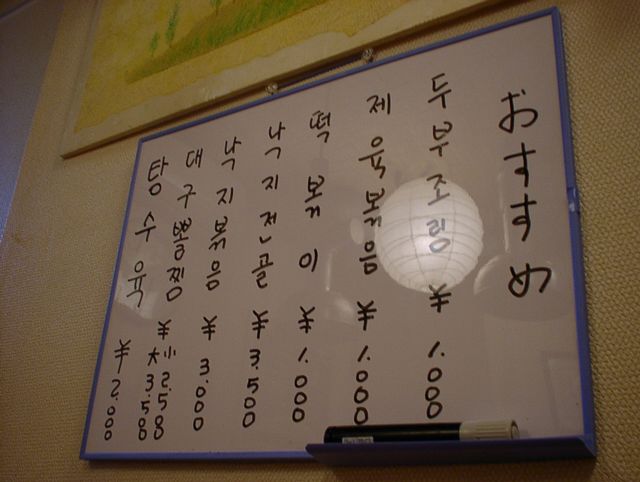 おすすめ
두부조림 ¥1.000
제육볶음 ¥1.000
떡볶이 ¥1.000
낙지전골 ¥3.500
낙지볶음 ¥3.000
대구뽈찜 ¥小2.500 大3.500
탕수육 ¥2.000